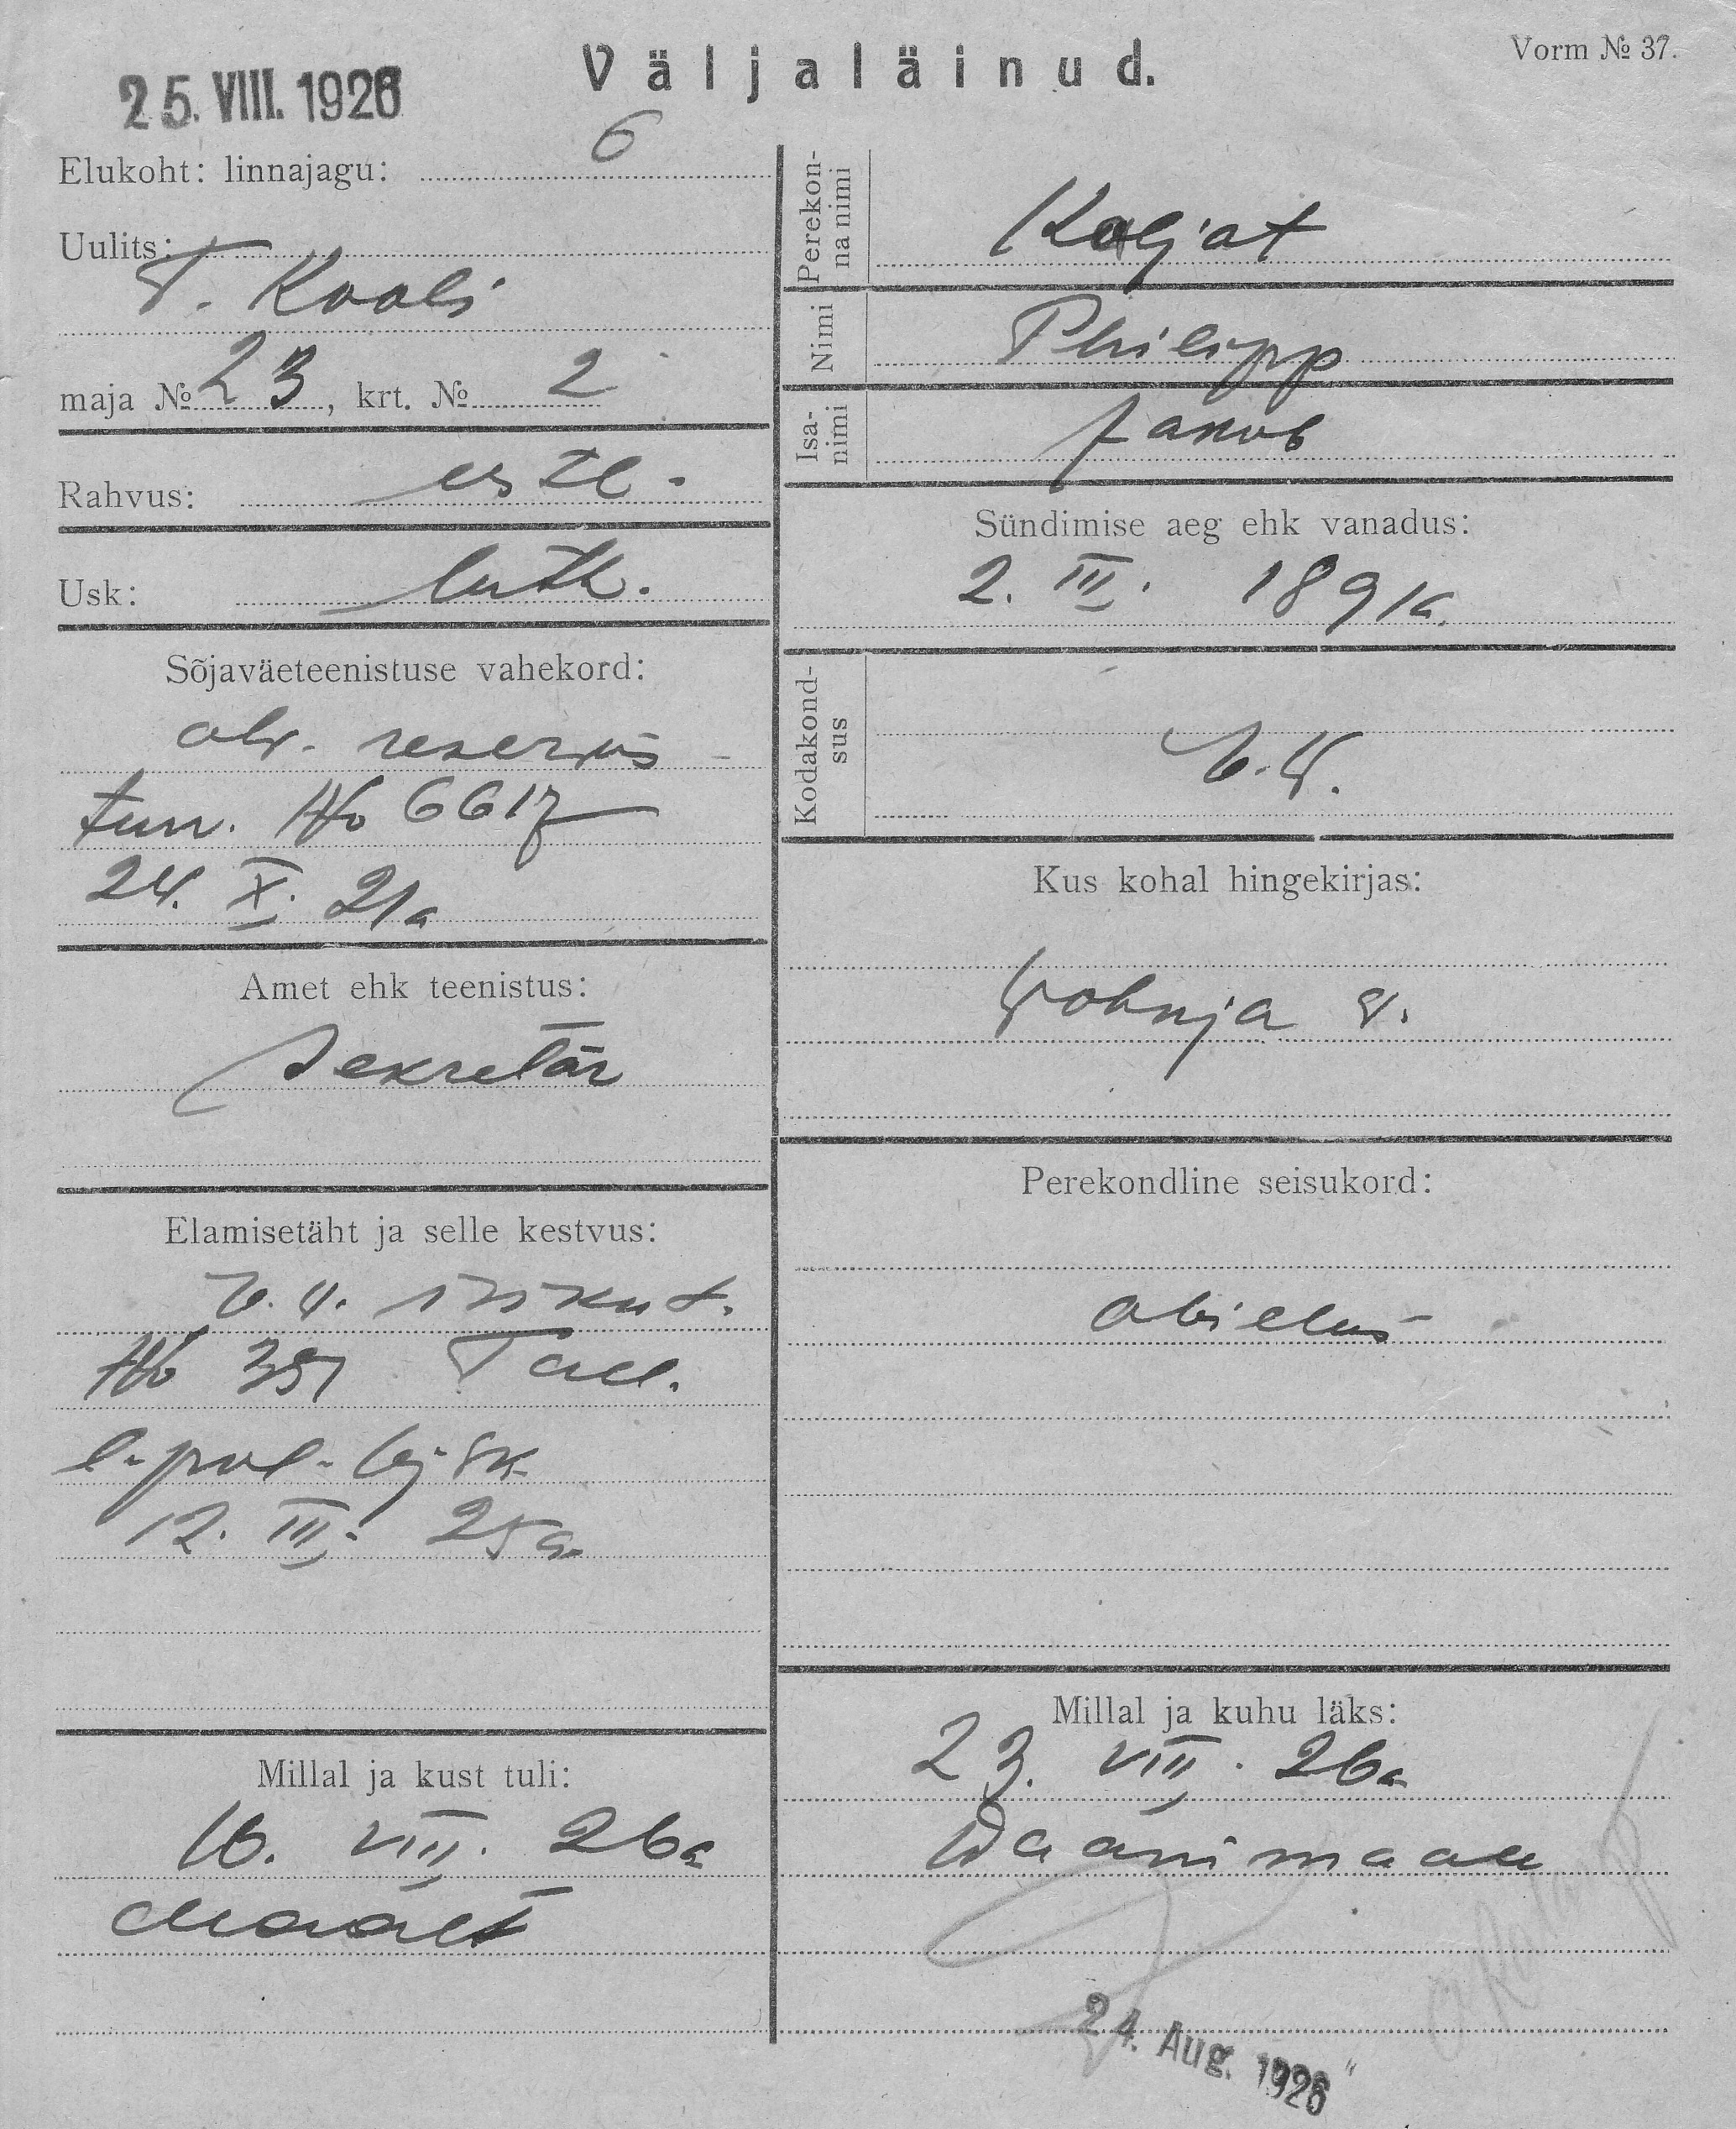 25. VIII. 1926
Väljaläinud.
Vorm № 37.
Elukoht: linnajagu: 6
Uulits:
T. Kooli
maja № 23, krt. № 2
Rahvus: estl.
Usk: luth.
Sõjaväeteenistuse vahekord:
reservis
tun. No 6617
24. X. 21a
Amet ehk teenistus:
Sekretär
Elamisetäht ja selle kestvus:
E.V. isikut.
No 351 Tall.
l. pol.
12. III. 25a.
Millal ja kust tuli:
10. VIII. 26a
Maalt
Perekonna nimi
Koljat
Nimi
Philipp
Isanimi
Jakob
Sündimise aeg ehk vanadus:
2. III. 1891a.
Kodakondsus
E.V.
Kus kohal hingekirjas:
Vohnja v.
Perekondline seisukord:
abielus
Millal ja kuhu läks:
23. VIII. 26a
Daanimaale
24. Aug. 1926